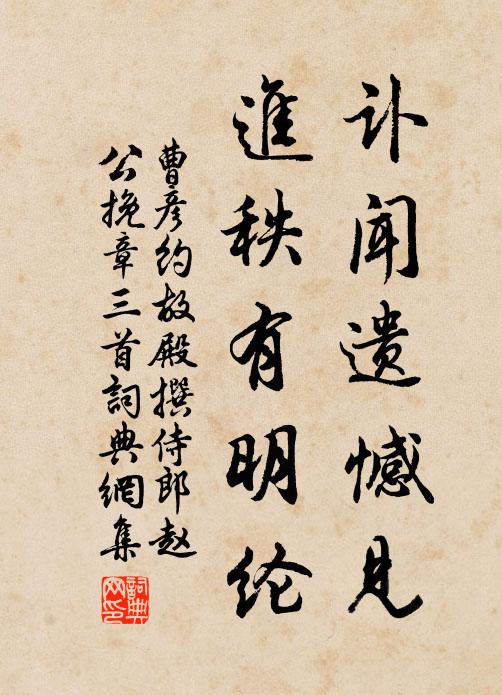 讣闻遗憾见
進秩有明纶
曹彦约故殿撰侍郎赵
公挽章三首詞典網集
詞典網印